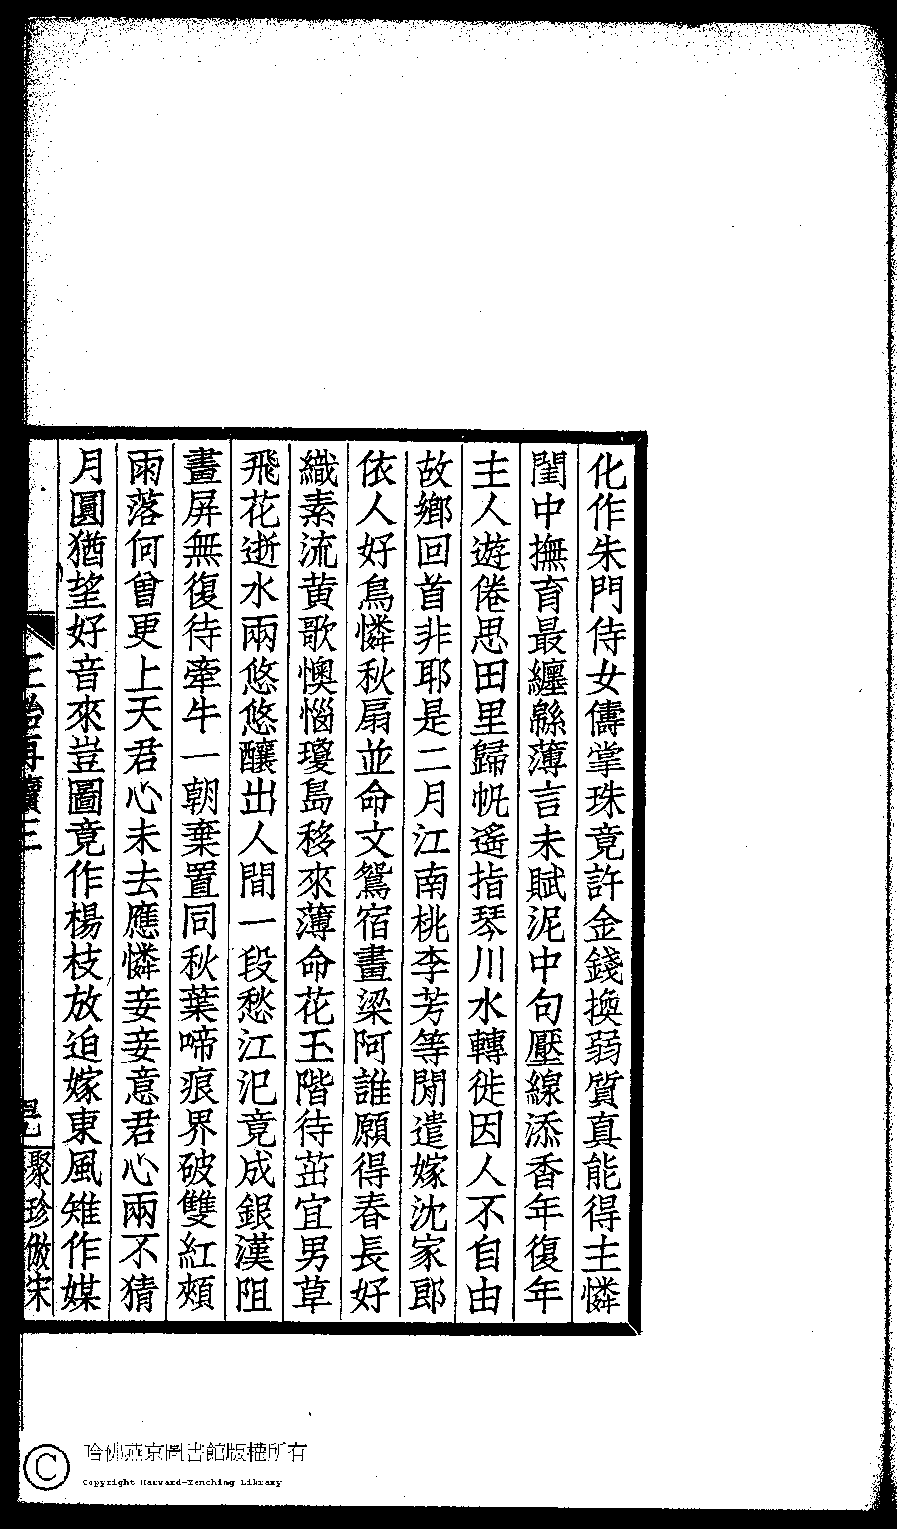 化作朱門侍女儔掌珠竟許金錢換弱質真能得主憐
閨中撫育最纏緜薄言未賦泥中句壓線添香年復年
主人遊倦思田里歸帆遙指琴川水轉徙因人不自由
故鄉回首非耶是二月江南桃李芳等閒遣嫁沈家郎
依人好鳥憐秋扇並命文鴛宿畫梁阿誰願得春長好
織素流黄歌懊惱瓊島移來薄命花玉階待茁宜男草
飛花逝水兩悠悠釀出人間一段愁江汜竟成銀漢阻
畫屏無復待牽牛一朝棄置同秋葉啼痕界破雙紅頰
雨落何曾更上天君心未去應憐妾妾意君心兩不猜
月圓猶望好音來豈圖竟作楊枝放迫嫁東風雉作媒
聚珍倣宋
哈佛燕京圖書館版權所有
Copyright Harvard-Yenching Library